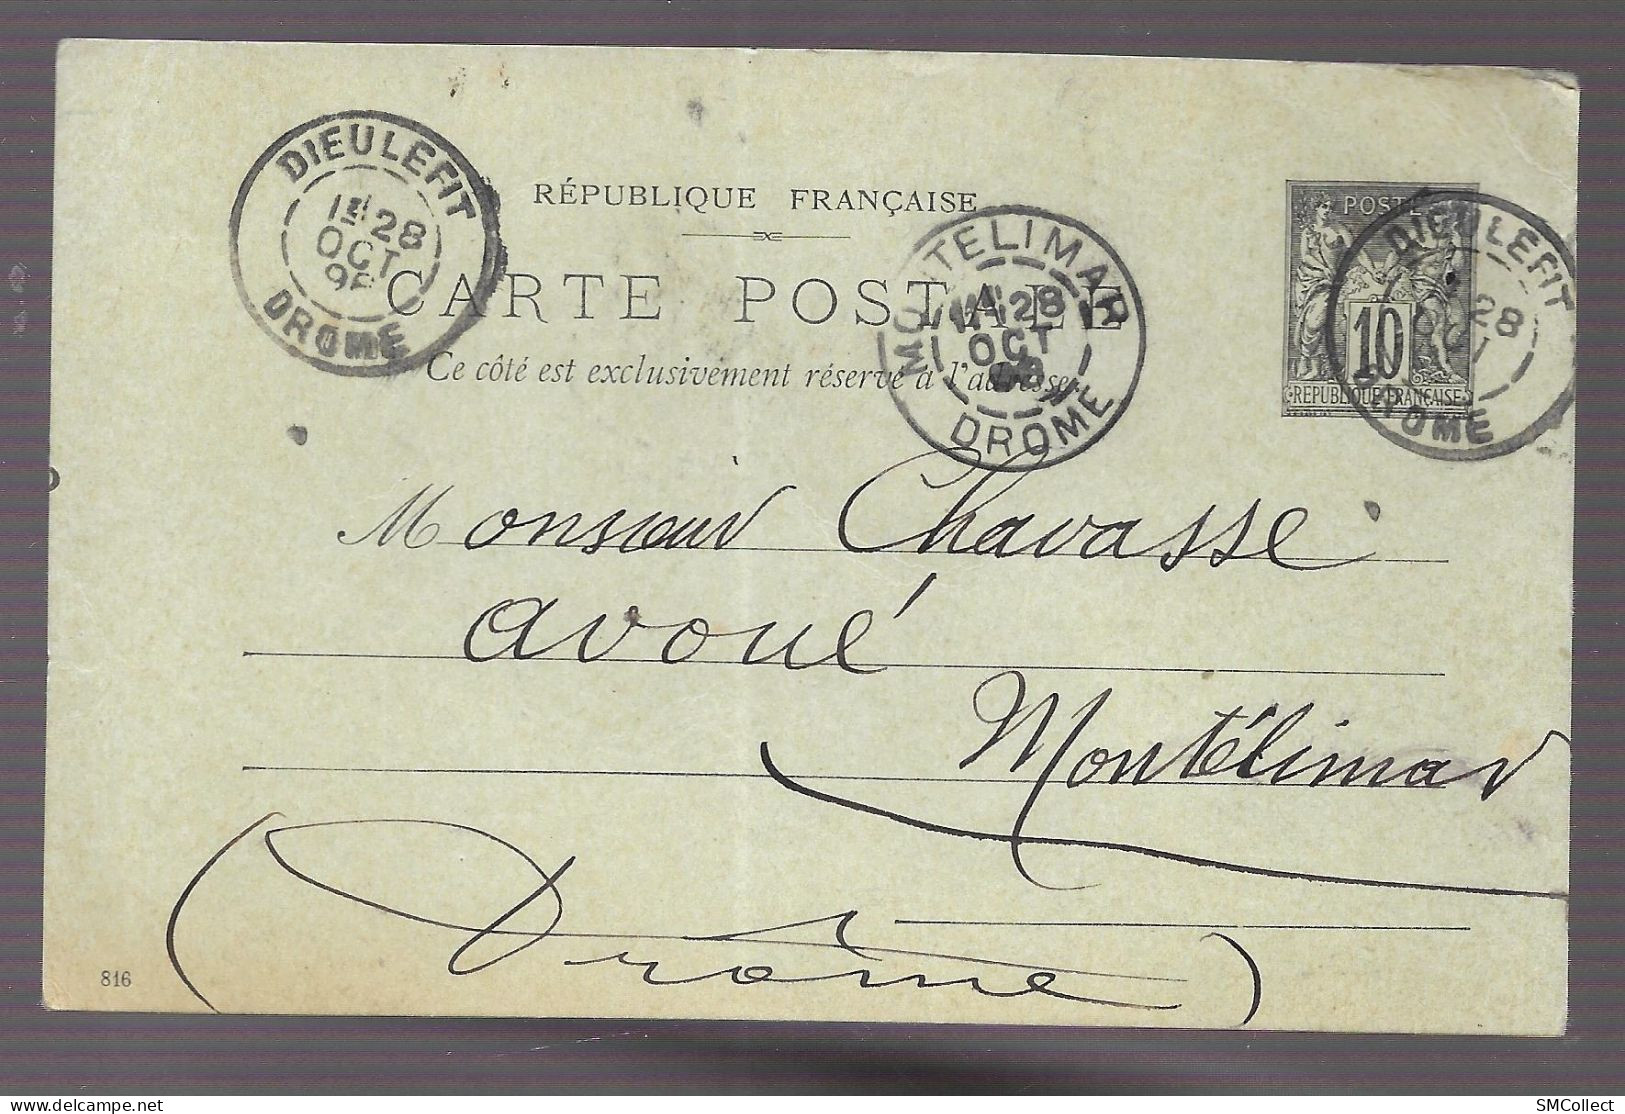 DIEULEFIT
1E 28
OCT
DROME
RÉPUBLIQUE FRANÇAISE
CARTE POSTALE
Ce côté est exclusivement réservé à l'adresse.
MONTELIMAR
28
OCT
98
DROME
POSTES
10
REPUBLIQUE FRANÇAISE
DIEULEFIT
28
OCT
DROME
Monsieur Chavasse
avoué
Montélimar
(Drôme)
816
SMCollect